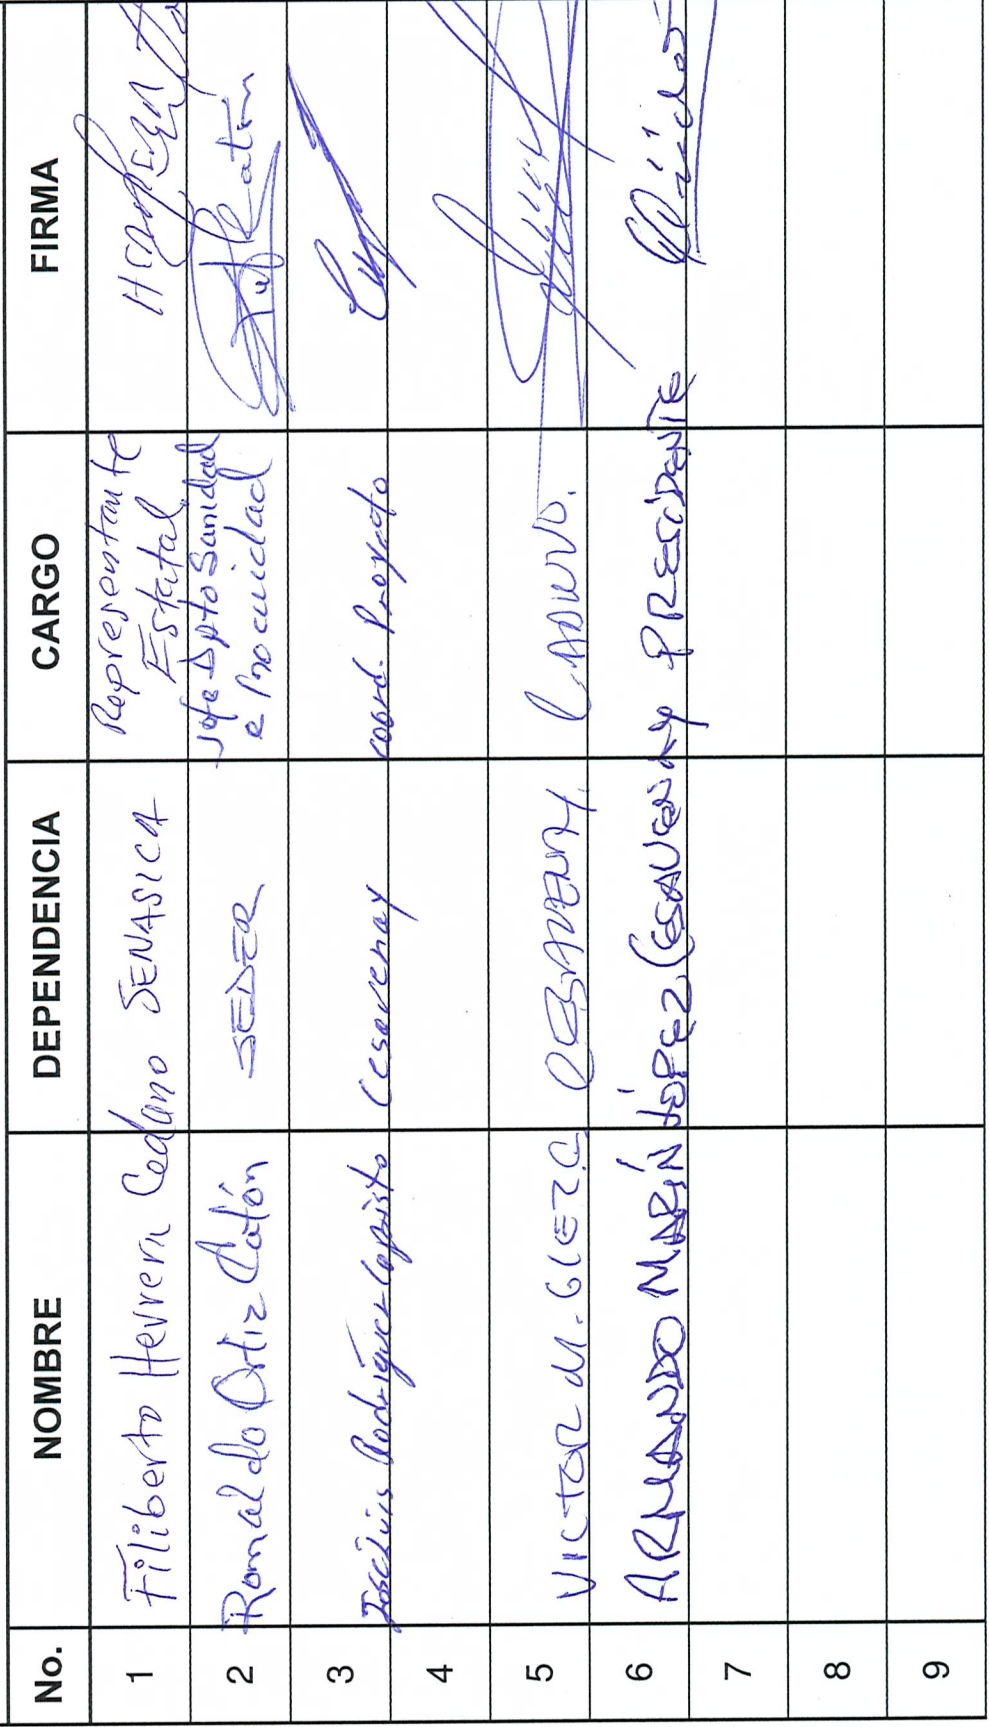 No. NOMBRE DEPENDENCIA CARGO FIRMA
1 Filiberto Herrera Cedano SENASICA Representante Estatal
2 Romaldo Ortiz Catón SEDER Jefe Dpto Sanidad e Inocuidad
3 José Luis Rodríguez Capisto Cesavenay coord. Proyecto
4
5 VICTOR M. GLEZ C CESAVENAY.
6 ARMANDO MARÍN LÓPEZ CESAVENAY PRESIDENTE
7
8
9